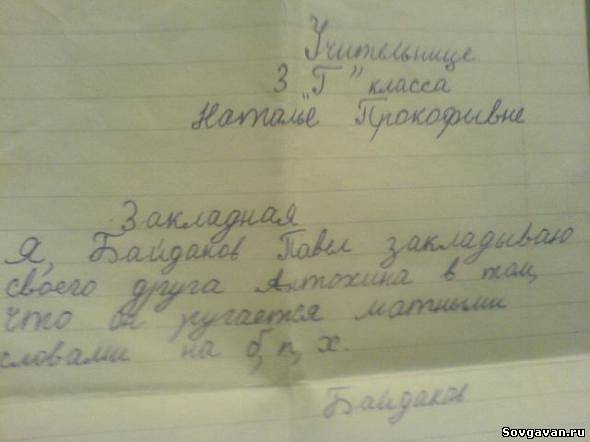 Учительнице
3 "Г" класса
Наталье Прокофивне
Закладная
Я, Байдаков Павел закладываю
своего друга Антохина в том,
что он ругается матными
словами на б, п, х.
Байдаков
Sovgavan.ru